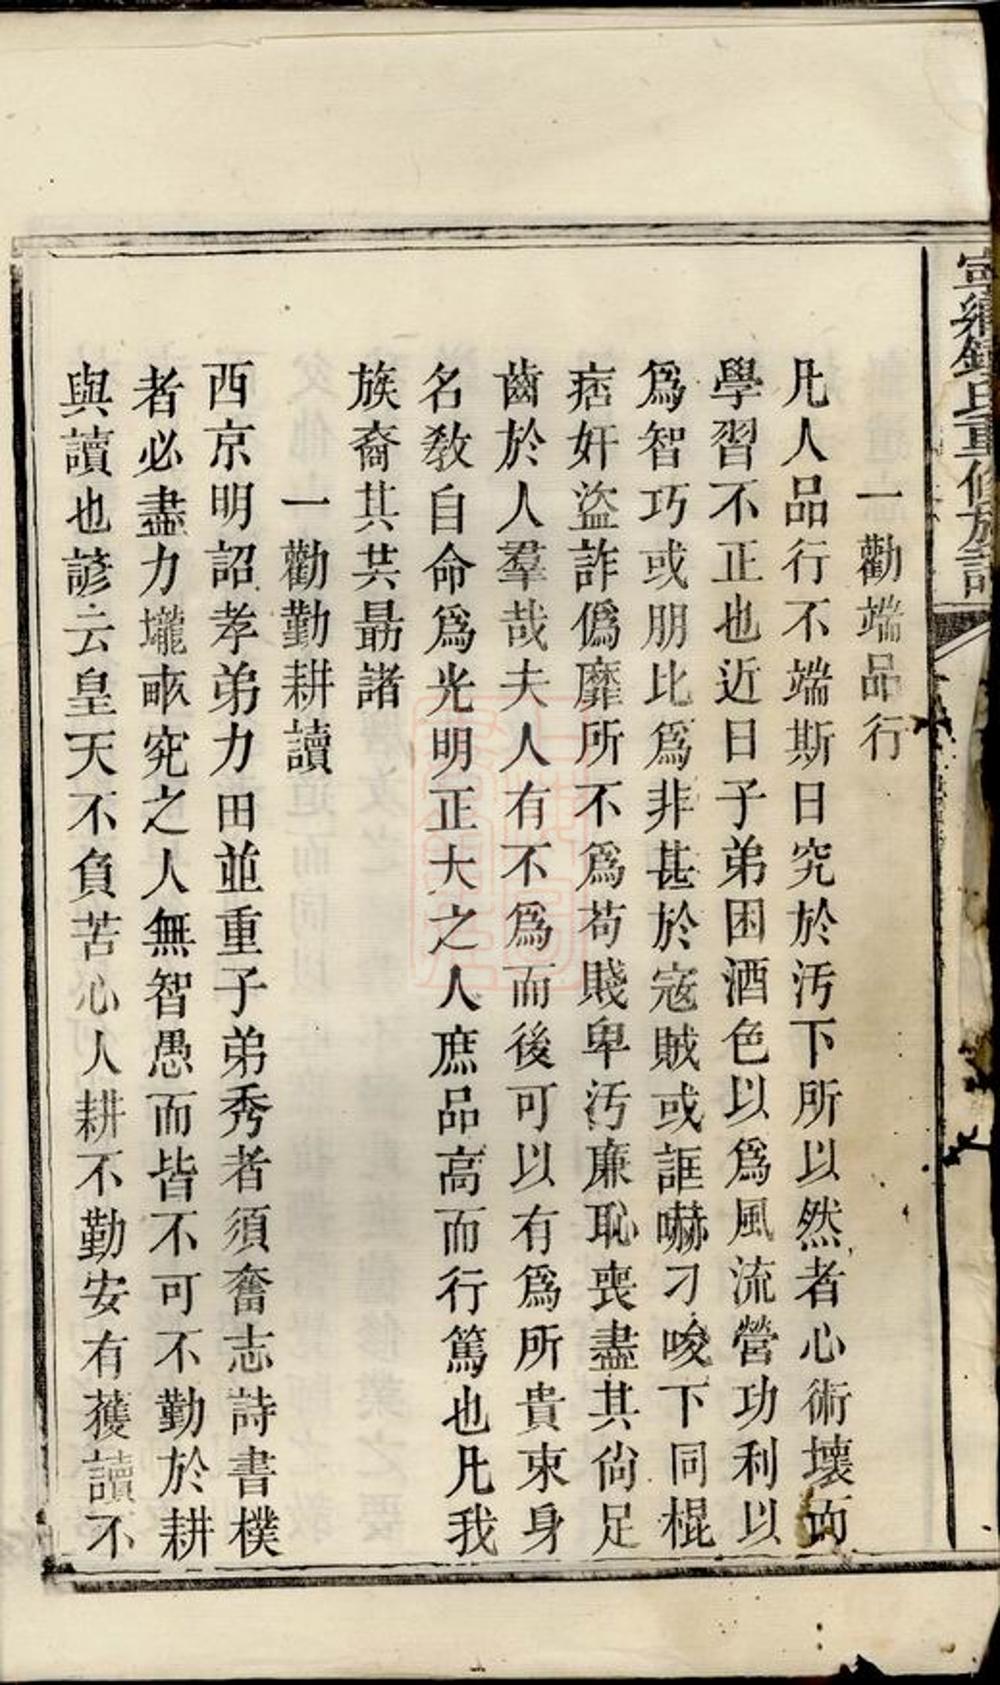 寧鄉鍾氏重修族譜
一勸端品行
凡人品行不端斯日究於汚下所以然者心術壞而
學習不正也近日子弟困酒色以爲風流營功利以
爲智巧或朋比爲非甚於寇賊或誆嚇刁唆下同棍
痞奸盜詐僞靡所不爲苟賤卑汚廉恥喪盡其尙足
齒於人羣哉夫人有不爲而後可以有爲所貴束身
名敎自命爲光明正大之人庶品高而行篤也凡我
族裔其共勗諸
一勸勤耕讀
西京明詔孝弟力田並重子弟秀者須奮志詩書樸
者必盡力壠畝究之人無智愚而皆不可不勤於耕
與讀也諺云皇天不負苦心人耕不勤安有獲讀不